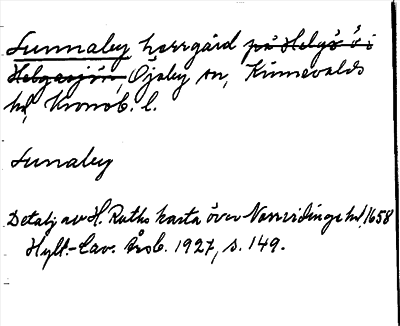 Sunnaby herrgård på Helgö ö i
Helgasjön, Öjaby sn, Kinnevalds
hd, Kronob. l.
Sunaby
Detalj av H. Ruths karta över Norrvidinge hd, 1658
Hylt.-Cav. Årsb. 1927, s. 149.